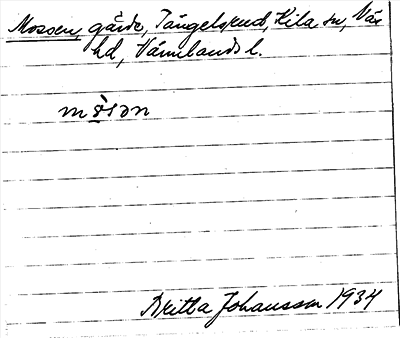 Mossen, gärde, Tängelsrud, Kila sn, Näs
hd, Värmlands l.
mòsən
Britta Johansson 1934